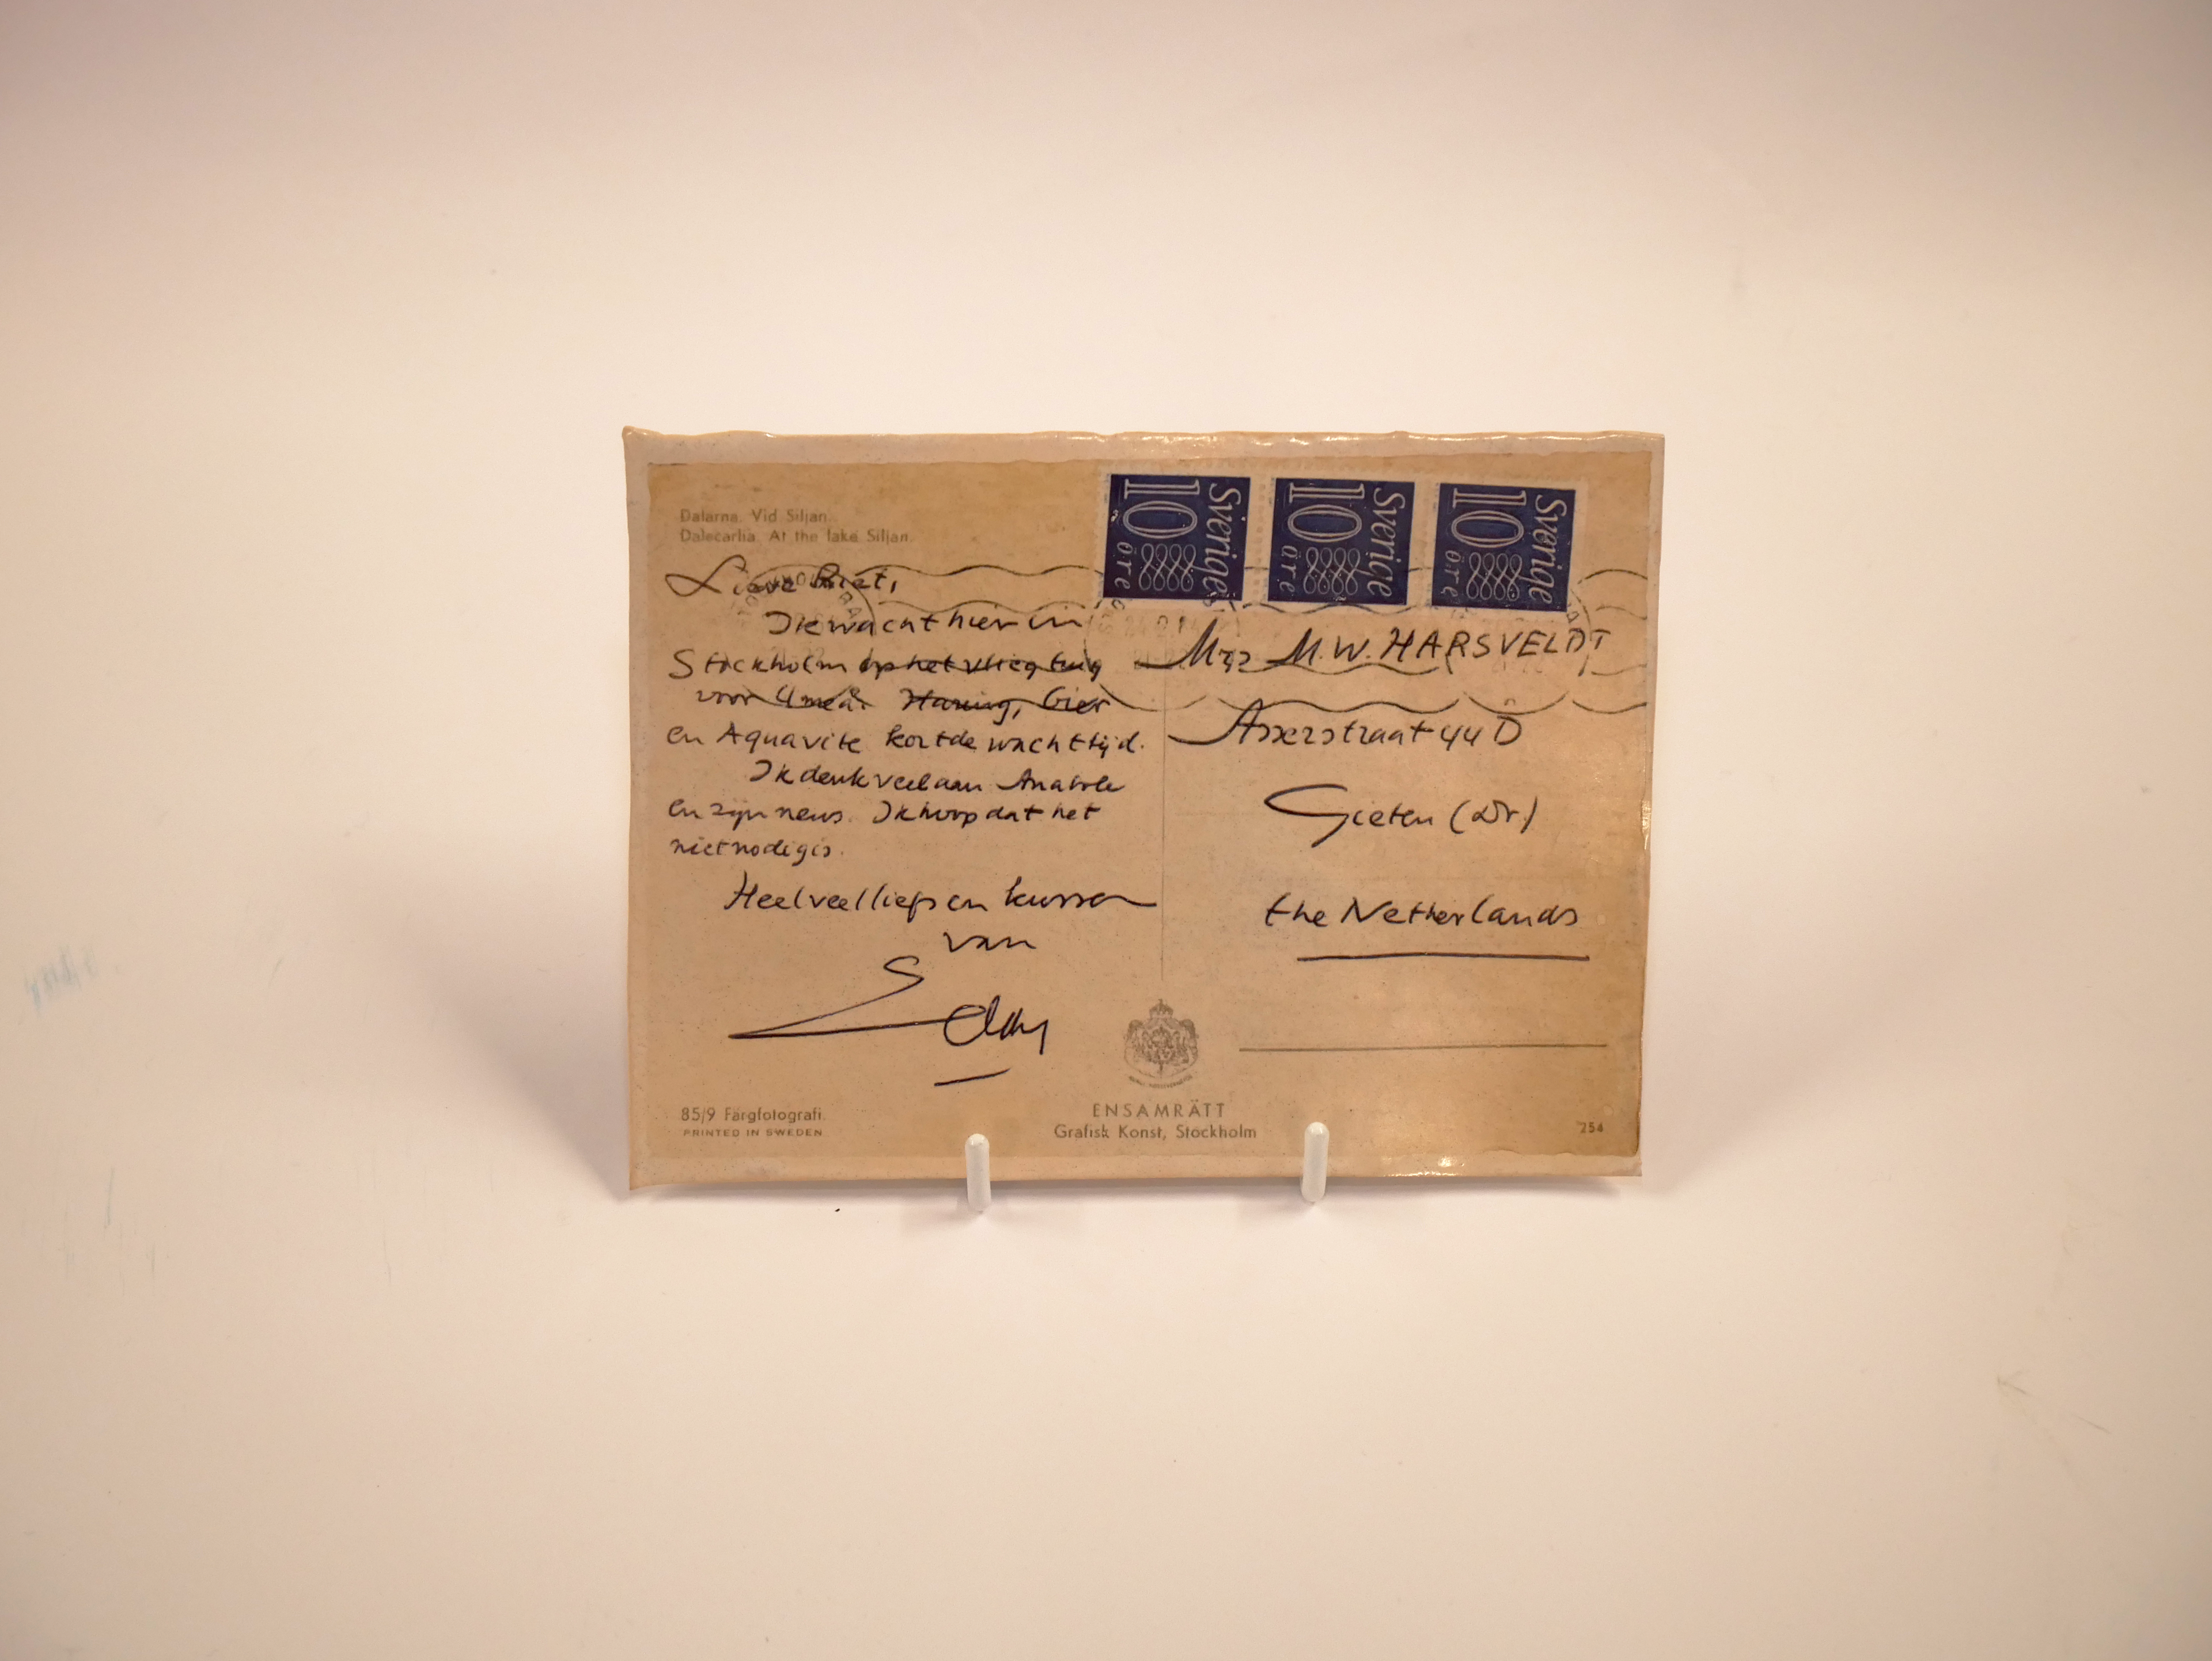 Dalarna. Vid Siljan.
Dalecarlia. At the lake Siljan.
Sverige 10 öre
Sverige 10 öre
Sverige 10 öre
Lieve Griet,
Ik wacht hier in
Stockholm op het vliegtuig
voor Umeå. Haring, bier
en Aquavite kort de wachttijd.
Ik denk veel aan Anatole
en zijn neus. Ik hoop dat het
niet nodig is.
Heel veel liefs en kussen
van
Mrs M.W. HARSVELDT
Asserstraat 44 D
Gieten (Dr.)
the Netherlands
85/9 Färgfotografi.
PRINTED IN SWEDEN
ENSAMRÄTT
Grafisk Konst, Stockholm
254